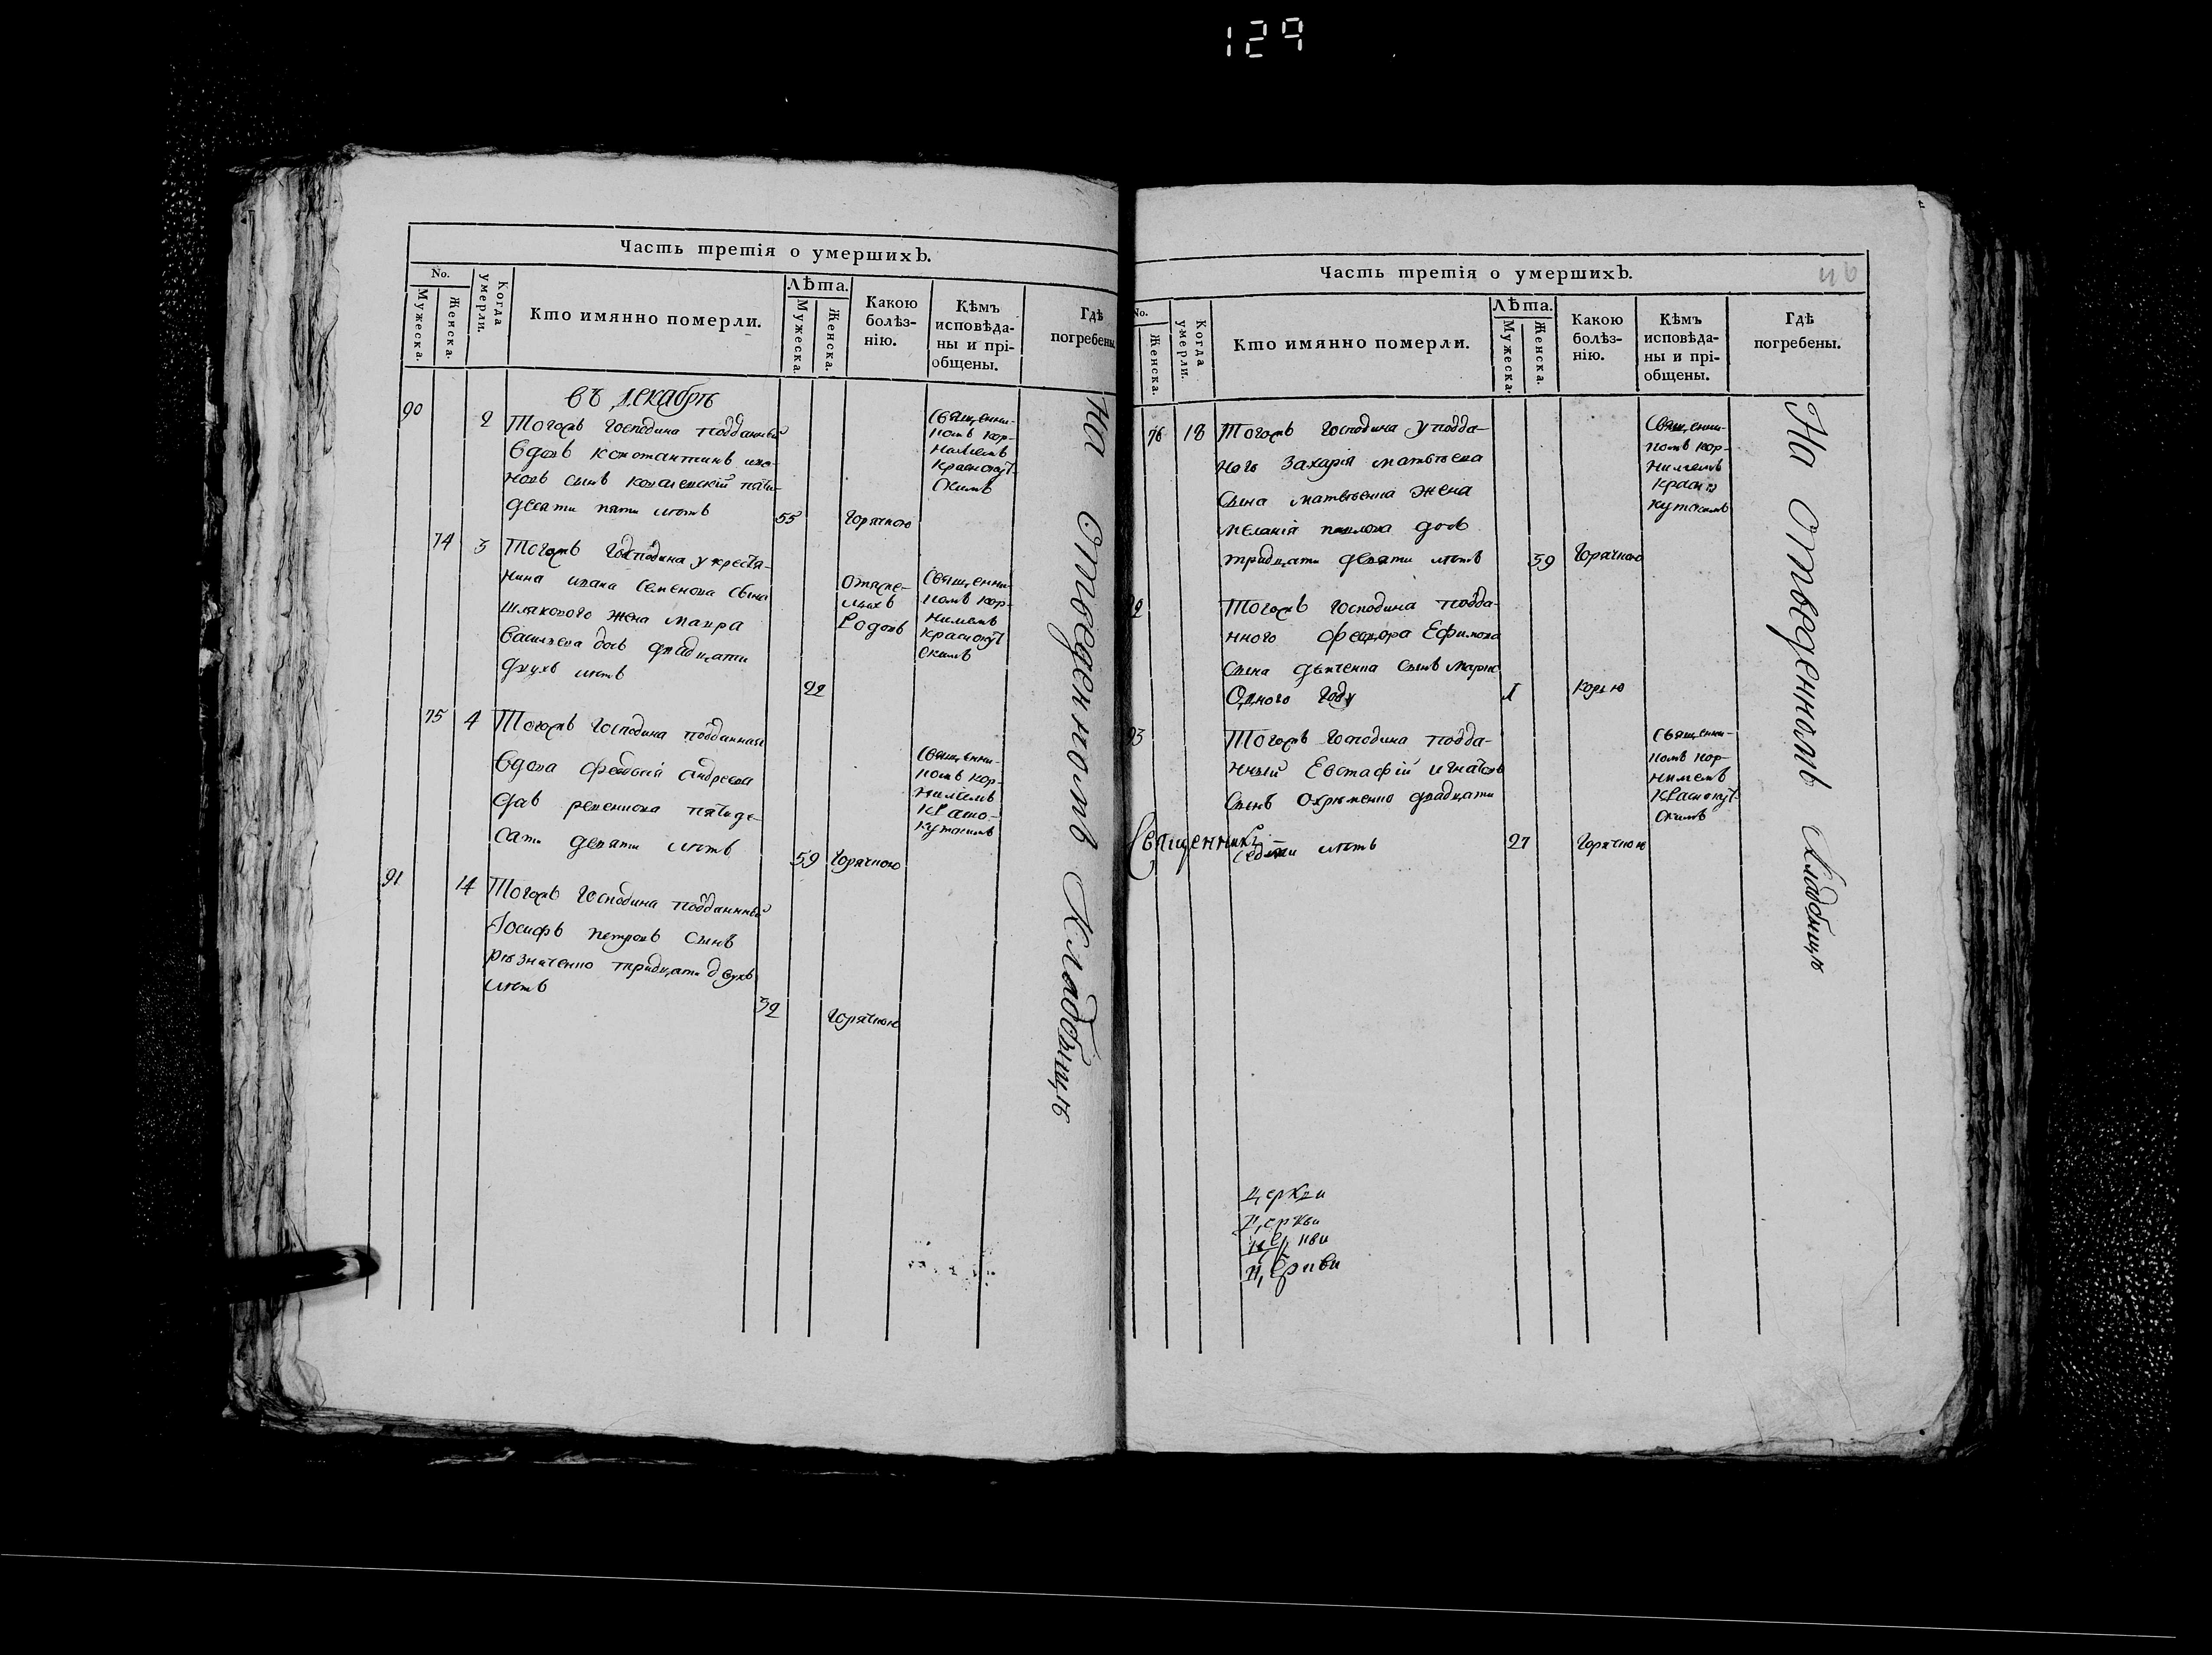 129
Часть третія о умершихъ.
No.
Мужеска.
Женска.
Когда умерли.
Кто имянно померли.
Лѣта.
Мужеска.
Женска.
Какою болѣз-
нію.
Кѣмъ
исповѣда-
ны и прі-
общены.
Гдѣ
погребены.
въ декабрѣ
90 2 Тогожъ господина подданный
вдовъ константинъ
новъ сынъ пяти
десяти пяти лѣтъ 55 Горячкою
Священни-
комъ кор-
ниліемъ
краснокут-
скимъ
74 3 Тогожъ Господина у крестя-
нина ивана Семенова сына
жена мавра
васильева дочь двадцати
двухъ лѣтъ 22
Отяже-
лыхъ
Родовъ
Священни-
комъ кор-
ниліемъ
краснокут
скимъ
75 4 Тогожъ Господина подданная
вдова феодосія андреева
дочь пятиде-
сати девяти лѣтъ 59 Горячкою
Священни-
комъ кор-
ниліемъ
красно-
кутскимъ
91 14 Тогожъ Господина подданный
Іосифъ петровъ сынъ
резниченко тридцати двухъ
лѣтъ 32 Горячкою
На Отведенномъ Кладбищѣ
Часть третія о умершихъ.
No.
Женска.
Когда умерли.
Кто имянно померли.
Лѣта.
Мужеска.
Женска.
Какою
болѣз-
нію.
Кѣмъ
исповѣда-
ны и прі-
общены.
Гдѣ
погребены.
76 18 Тогожъ Господина у подда-
ного Захарія матвѣева
Сына матвѣенка жена
меланія павлова дочь
тридцати девяти лѣтъ 59 Горячкою
Священни-
комъ кор-
ниліемъ
красно
кутскимъ
92 Тогожъ Господина подда-
нного феодора Ефимова
Сына сынъ
Одного Году 1 корью
93 Тогожъ Господина подда-
нный Евстафій игнатовъ
Сынъ двадцати
седми лѣтъ 27 Горячкою
Священни-
комъ кор-
ниліемъ
Краснокут-
скимъ
Священникъ
На Отведенномъ Кладбищѣ
церкви
церкви
церкви
церкви